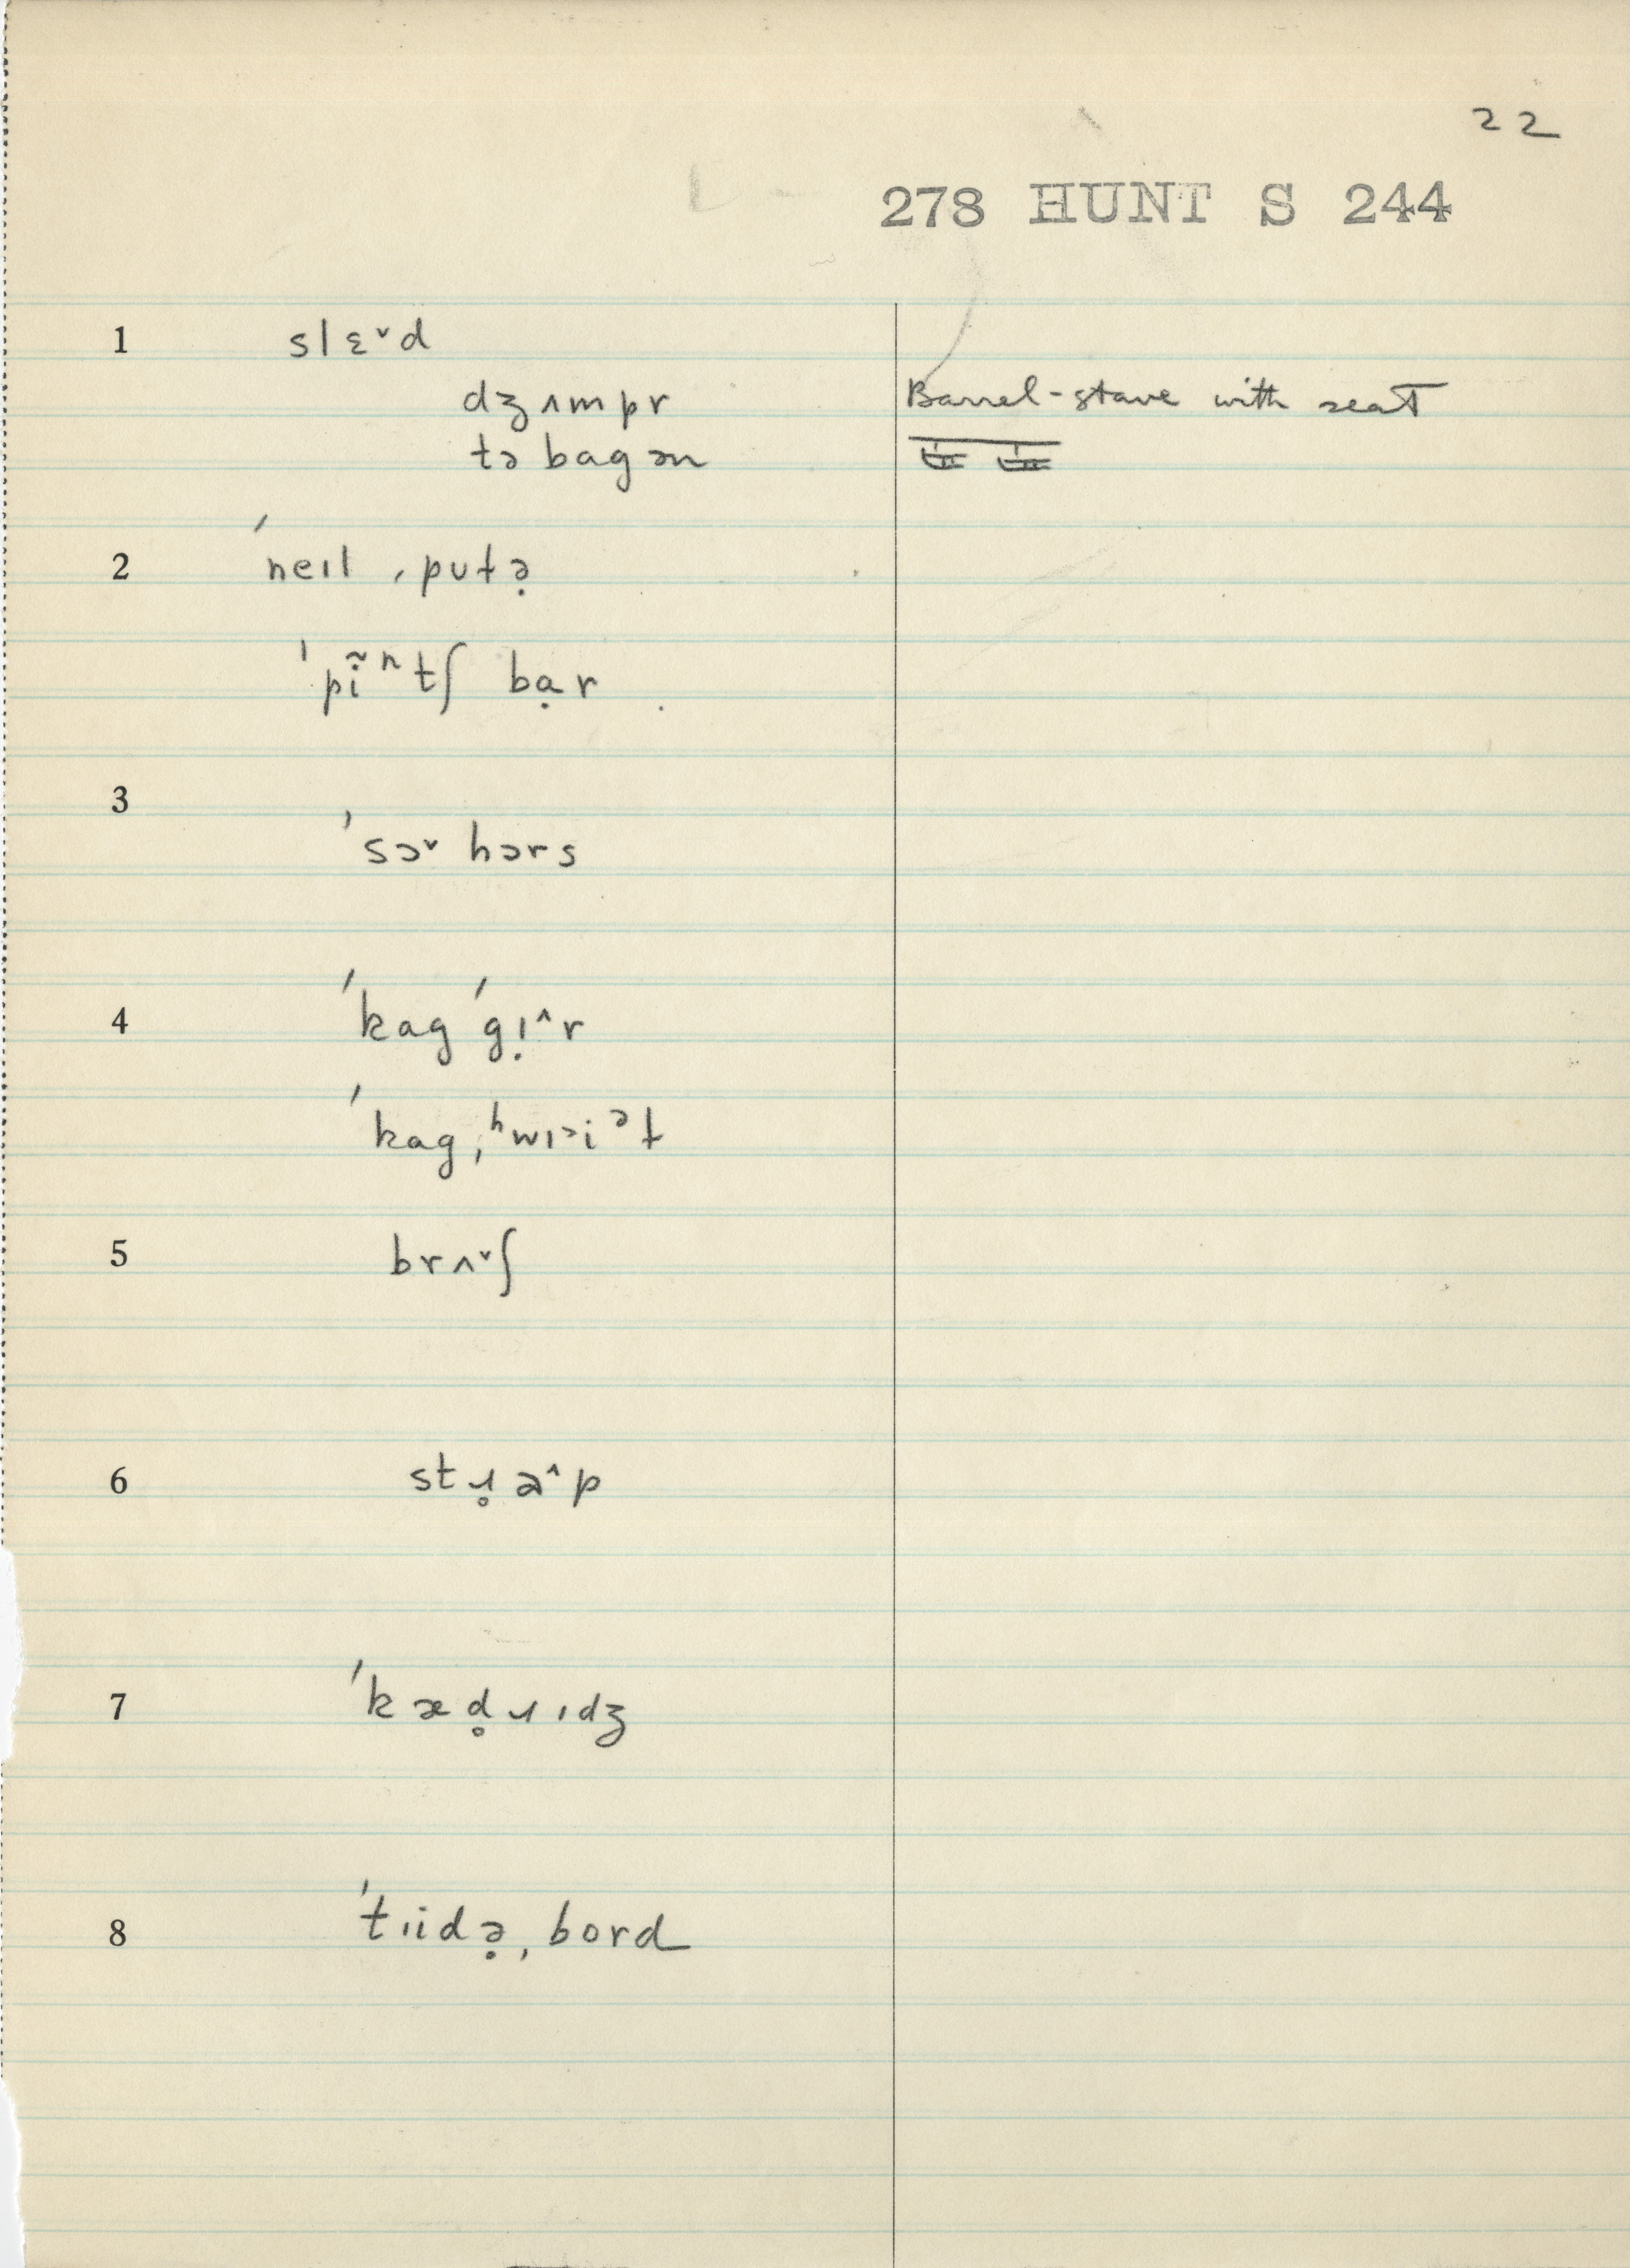 22
278 HUNT S 244
1 slɛ˅d
dʒʌmpr Barrel-stave with seat
təbagən
2 ˈneɪl ˌpulə̣
ˈpị̃ⁿtʃ bạr
3 ˈsɔ˅ hɔrs
4 ˈkag ˈgɪ̣^r
ˈkag ˌʰwɪ˃iᵊl
5 brʌ˅ʃ
6 stɹ̥a^p
7 ˈkæd̥ɹɪdʒ
8 ˈtɪidə̣ ˌbord